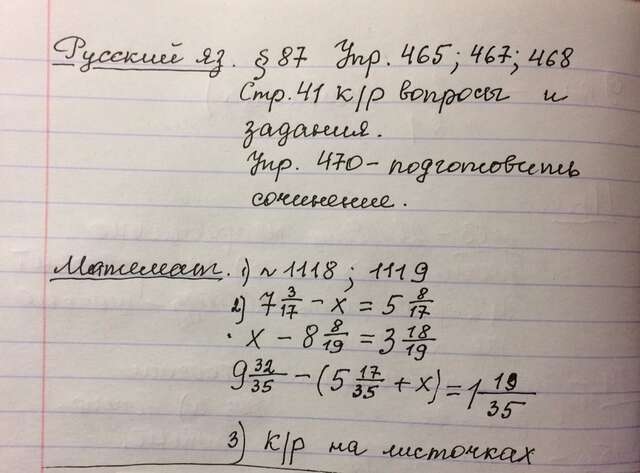 Русский яз. § 87 Упр. 465; 467; 468
Стр. 41 к/р вопросы и
задания.
Упр. 470 - подготовить
сочинение.
Математ. 1) № 1118; 1119
2) 7 3/17 - х = 5 8/17
х - 8 8/19 = 3 18/19
9 32/35 - (5 17/35 + х) = 1 19/35
3) к/р на листочках